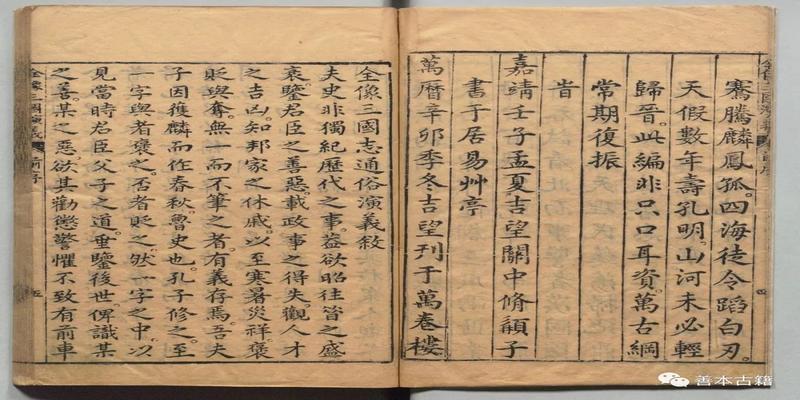 騫騰麟鳳孤四海徒令蹈白刃
天假數年壽孔明山河未必輕
歸晉此編非只口耳資萬古綱
常期復振
旹
嘉靖壬子孟夏吉望關中脩顓子
書于居易艸亭
萬曆辛卯季冬吉望刊于萬卷樓
全像三國志通俗演義敘
夫史非獨紀歷代之事益欲昭往昔之盛
衰鑒君臣之善惡載政事之得失觀人才
之吉凶知邦家之休戚以至寒暑災祥褒
貶與奪無一而不筆之者有義存焉吾夫
子因獲麟而作春秋魯史也孔子修之至
一字與者褒之否者貶之然一字之中以
見當時君臣父子之道垂鑒後世俾識某
之善某之惡欲其勸懲警懼不致有前車
全像三國演義 前序 五
四
善本古籍